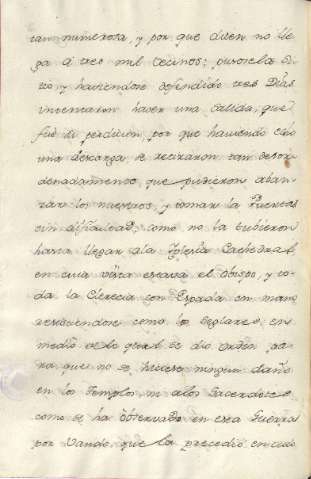 tan numerosa, y por que dicen no lle
ga a tres mil vecinos; pusosela si
tio, y haviendose defendido tres Dias
intentaron hacer una salida, que
fue su perdicion, por que haviendo echo
una descarga se retiraron tan desor
denadamente, que pudieron aban
zar los nuestros, y tomar la Puerta
sin dificultad; como no la tubieron
hasta llegar ala Iglesia Cathedral
en cuia vista estava el Obispo, y to
da la Clerecia con Espada en mano
defendiendose como los seglares, en
medio de lo qual se dio orden pa
ra que no se hiciese ningun daño
en los Templos, ni alos Sacerdotes
como se ha observado en esta Guerra
por Vando, que la precedio en todo